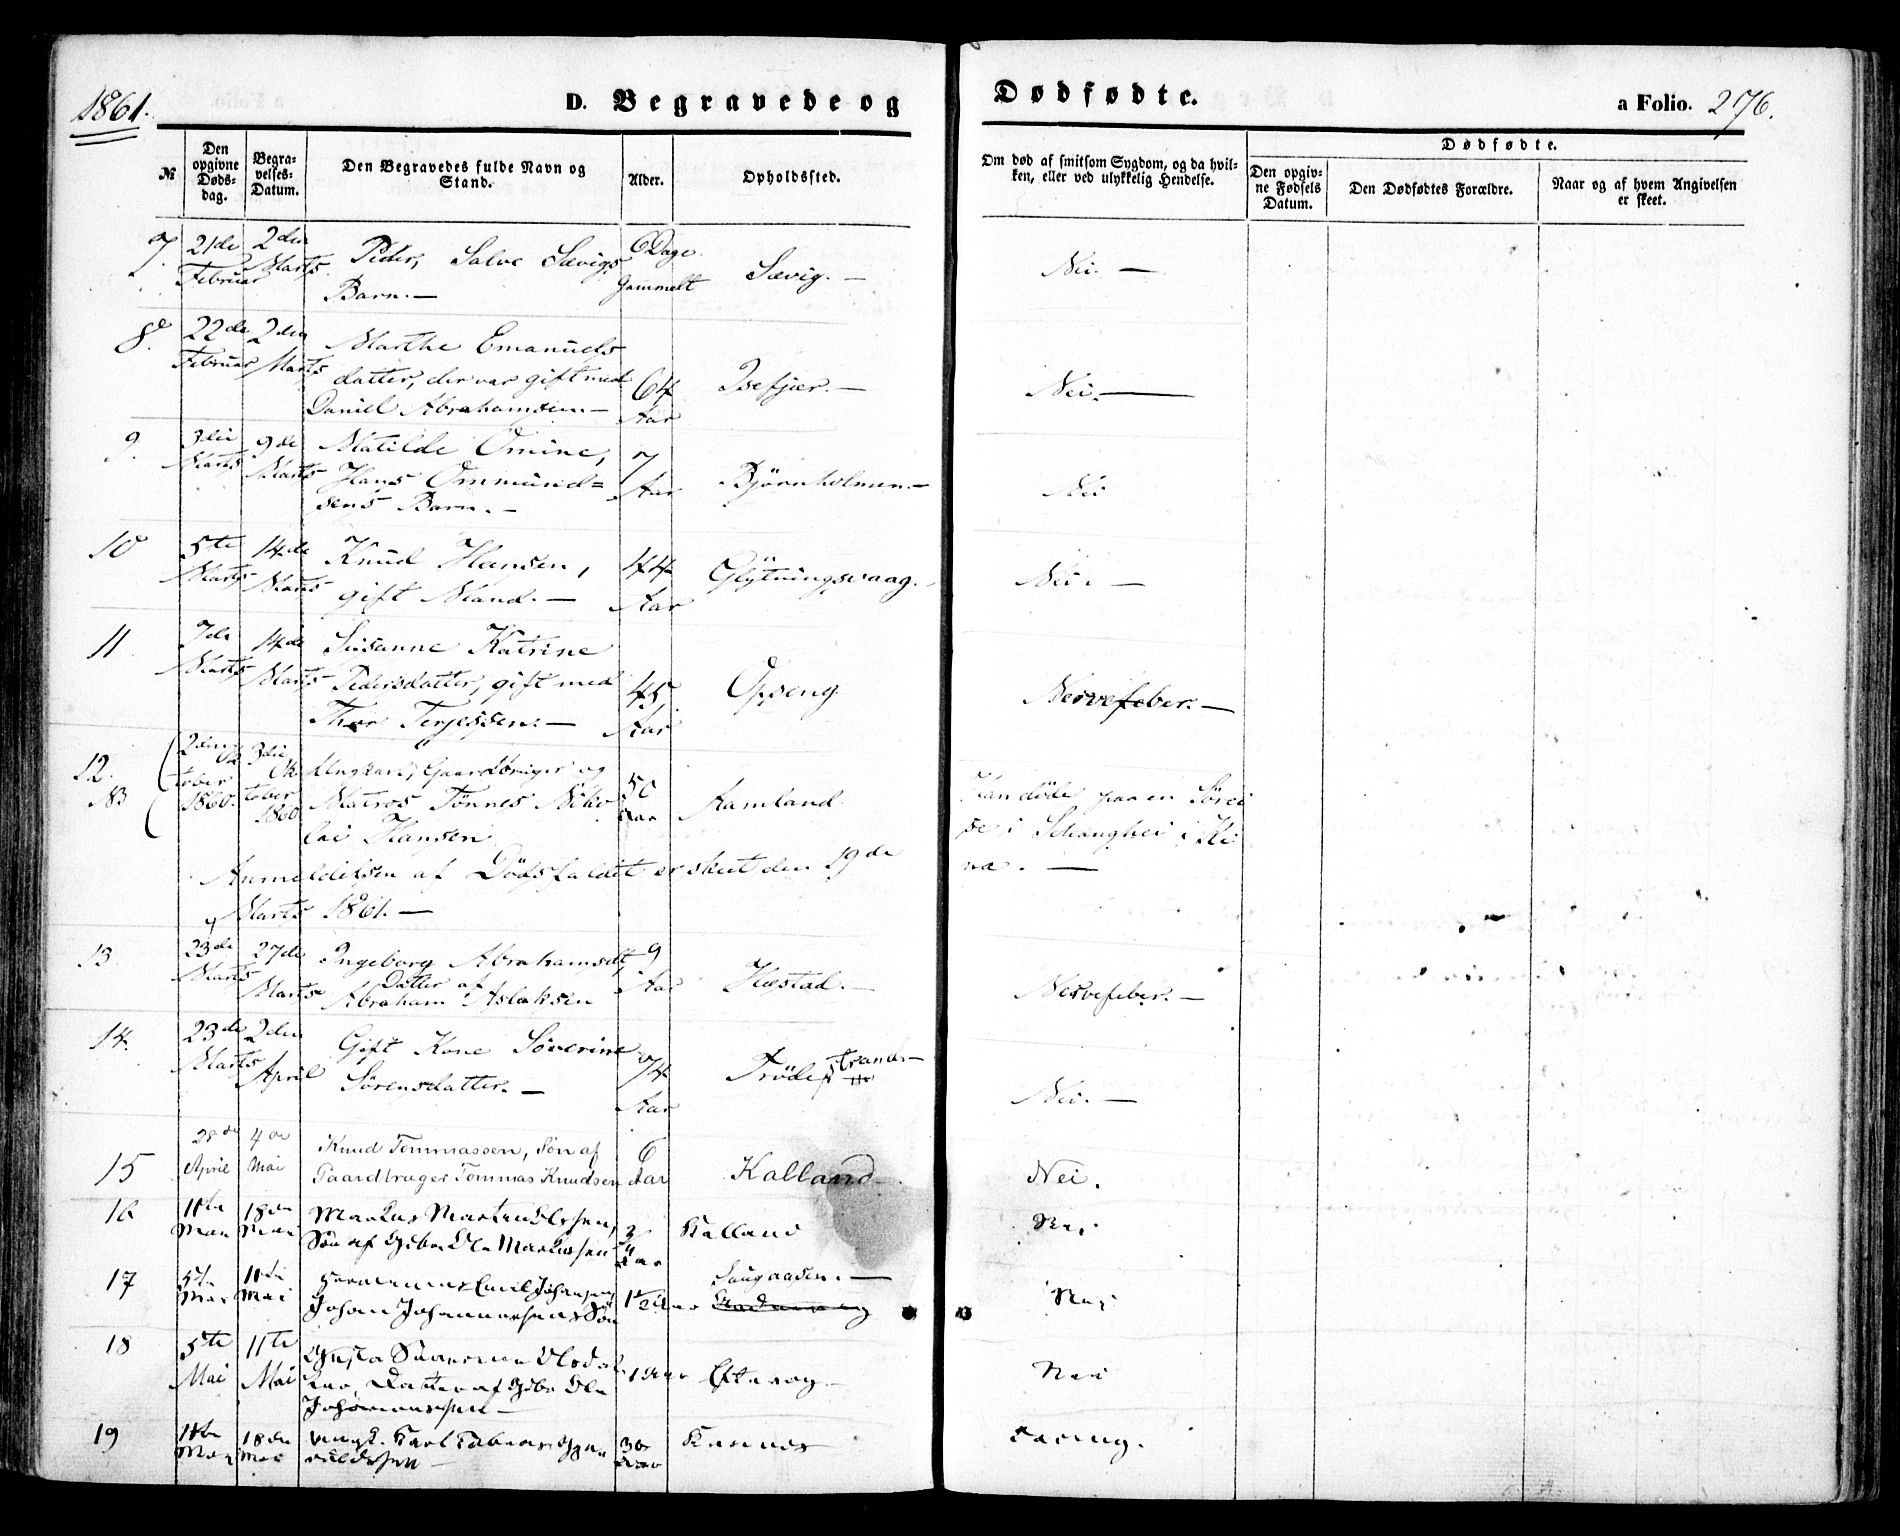 1861.
D. Begravede og
Dødfødte.
a Folio. 276.
№
Den opgivne Døds-dag.
Begra-velses-Datum.
Den Begravedes fulde Navn og Stand.
Alder.
Opholdssted.
Om død af smitsom Sygdom, og da hvil-ken, eller ved ulykkelig Hendelse.
Dødfødte.
Den opgiv-ne Fødsels Datum.
Den Dødfødtes Forældre.
Naar og af hvem Angivelsen er skeet.
7. 21de 2den Peder, Salve Sævigs 6 Dage
Februar Marts Barn.— gammelt Sævig.— Nei.—
8. 22de 2den Marthe Emanuels
Februar Marts datter, der var gift med 64 Isefjær.— Nei.—
Daniel Abrahamsen.— Aar
9. 3die 9de Matilde Omine, 7
Marts Marts Hans Ommund= Aar Bjørnholmen.— Nei
sens Barn.—
10 5te 14de Knud Hansen, 44 Glytningsvaag.— Nei.—
Marts Marts gift Mand.— Aar
11 7de 14de Susanne Katrine
Marts Marts Pedersdatter, gift med 45 Opseng Nervefeber.—
Thor Terjessen.— Aar
12. 2den Ok 3die Ok Ungkarl, Gaardbruger og 50
NB tober tober Matros Tønnes Niko Aar Aamland. Han døde paa en Sørei
1860. 1860 lai Hansen se i Schanghei i Ki
Anmeldelsen af Dødsfaldet er skeet den 19de na.—
Marts 1861.—
13 23de 27de Ingeborg Abrahamsdt, 9
Marts Marts Datter af Aar Hæstad.— Nervefeber.—
Abraham Aslaksen
14. 23de 2den Gift Kone Severine 74 Trødestrand—
Marts April Sørensdatter.— Aar Nei.—
15 28de 4de Knud Tommassen, Søn af 6
April Mai Gaardbruger Tommas Knudsen Aar Kalland Nei.
16 11te 18de Markus Martin Olsen, 3 Kalland Nei
Mai Mai Søn af Gbr Ole Markussen Aar
17 5te 11te Emil Johansen, Saugaasen.—
Mai Mai Johan Johannessens Søn 1½ Aar Nei
18 5te 11te
Mai Mai Datter af Gbr Ole 1 Aar Nei
Johannessen—
19 11te 18de Ungk. Karl Tobias
Mai Mai Aar